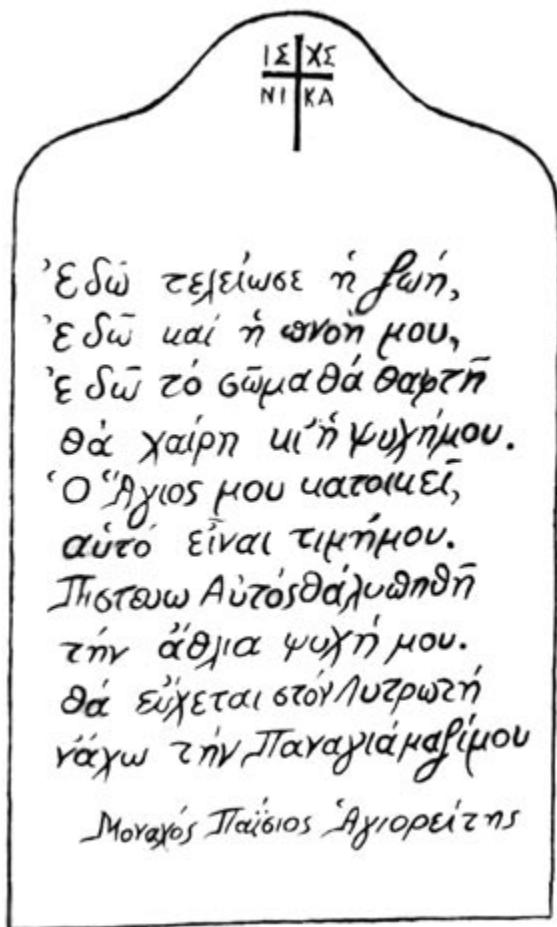 ΙΣ ΧΣ
ΝΙ ΚΑ
Ἐδῶ τελείωσε ἡ ζωή,
ἐδῶ καί ἡ πνοή μου,
ἐδῶ τό σῶμα θά θαφτῆ
θά χαίρη κι' ἡ ψυχή μου.
Ὁ Ἅγιος μου κατοικεῖ,
αὐτό εἶναι τιμή μου.
Πιστευω Αὐτός θά λυπηθῆ
τήν ἄθλια ψυχή μου.
Θά εὔχεται στόν Λυτρωτή
νἄχω τήν Παναγιά μαζί μου
Μοναχός Παΐσιος Ἁγιορείτης